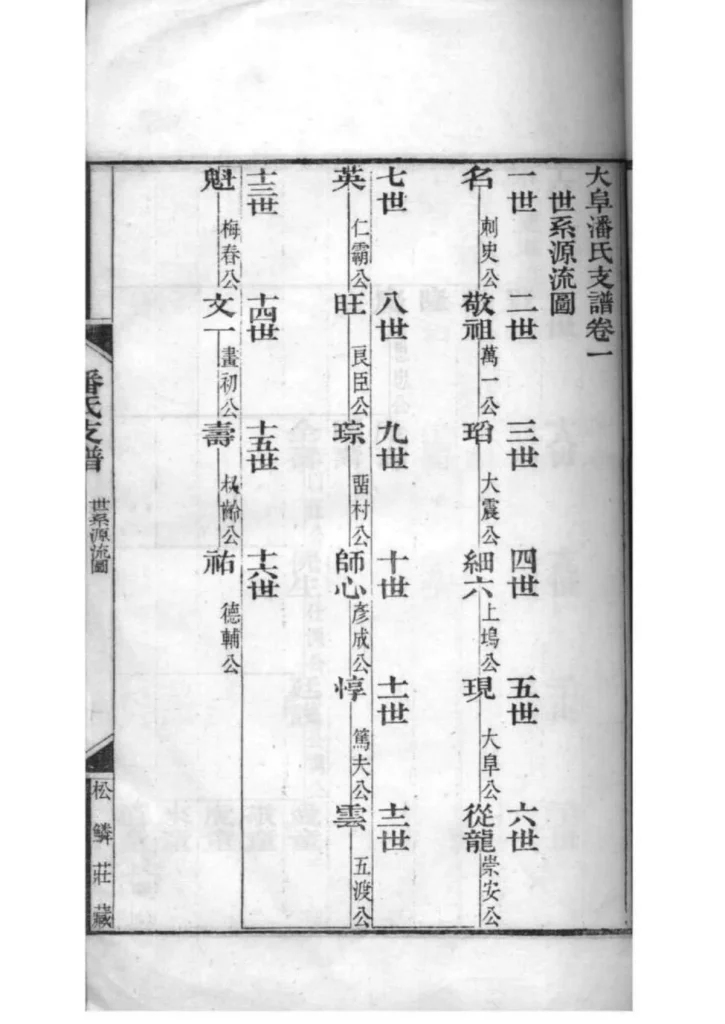 大阜潘氏支譜卷一
世系源流圖
一世 二世 三世 四世 五世 六世
名 刺史公 敬祖 萬一公 瑫 大震公 細六 上塢公 現 大阜公 從龍 崇安公
七世 八世 九世 十世 十一世 十二世
英 仁霸公 旺 良臣公 琮 畱村公 師心 彥成公 惇 篤夫公 雲 五渡公
十三世 十四世 十五世 十六世
魁 梅春公 文一 畫初公 壽 松齡公 祐 德輔公
潘氏支譜 世系源流圖 松鱗莊藏